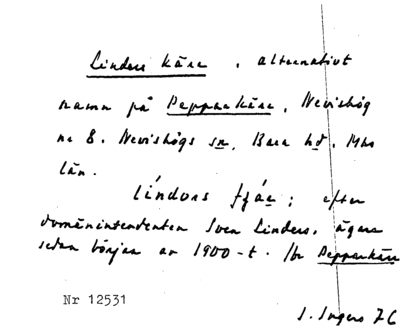 Linders kärr, alternativt
namn på Pepparkärr, Nevishög
nr 8. Nevishögs sn, Bara hd, Mhs
län.
líndors tjár; efter
domänintendenten Sven Linders, ägare
sedan början av 1900-t. Jbr Pepparkärr
Nr 12531
I. Ingers 76